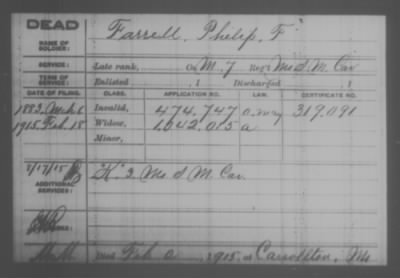 DEAD
NAME OF SOLDIER: Farrell, Philip, F
SERVICE: Late rank, Co. M. 7 Reg't Mo S. M. Cav
TERM OF SERVICE: Enlisted , 1 Discharged , 1
DATE OF FILING. CLASS. APPLICATION NO. LAW. CERTIFICATE NO.
1883, Mch 6 Invalid, 474.747 319.091
1915, Feb. 18 Widow, 1.042.015 a
Minor,
2/17/15
ADDITIONAL SERVICES: "K" 2. Mo S M. Cav.
Died Feb 1915, at Carrollton, Mo